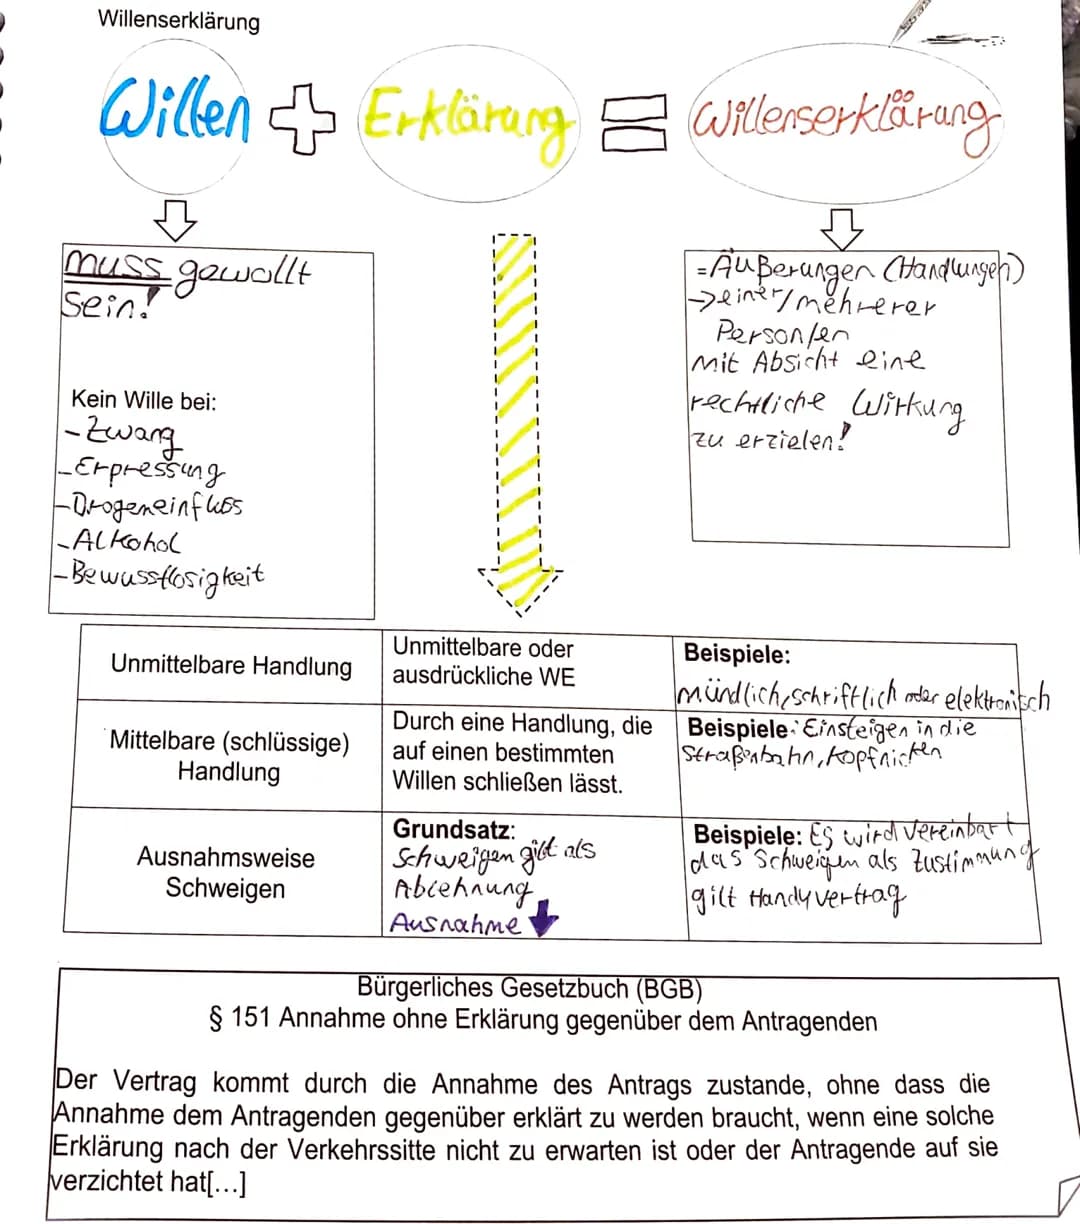 Willenserklärung
Willen + Erklärung = Willenserklärung
muss gewollt
sein!
Kein Wille bei:
- Zwang
- Erpressung
- Drogeneinfluss
- Alkohol
- Bewusstlosigkeit
= Äußerungen (Handlungen)
→ einer/mehrerer
Person/en
mit Absicht eine
rechtliche Wirkung
zu erzielen!
Unmittelbare Handlung
Unmittelbare oder
ausdrückliche WE
Beispiele:
mündlich, schriftlich oder elektronisch
Mittelbare (schlüssige)
Handlung
Durch eine Handlung, die
auf einen bestimmten
Willen schließen lässt.
Beispiele: Einsteigen in die
Straßenbahn, Kopfnicken
Ausnahmsweise
Schweigen
Grundsatz:
Schweigen gilt als
Ablehnung
Ausnahme
Beispiele: Es wird vereinbart
das Schweigen als Zustimmung
gilt Handyvertrag
Bürgerliches Gesetzbuch (BGB)
§ 151 Annahme ohne Erklärung gegenüber dem Antragenden
Der Vertrag kommt durch die Annahme des Antrags zustande, ohne dass die
Annahme dem Antragenden gegenüber erklärt zu werden braucht, wenn eine solche
Erklärung nach der Verkehrssitte nicht zu erwarten ist oder der Antragende auf sie
verzichtet hat[...]